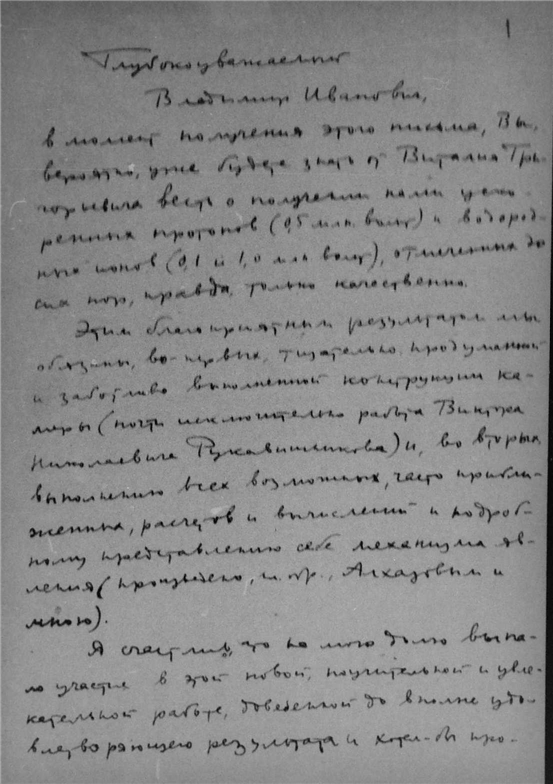 1
Глубокоуважаемый
Владимир Иванович,
в момент получения этого письма, Вы,
вероятно, уже будете знать от Виталия Гри-
горьевича весть о получении нами уско-
ренных протонов (0,5 млн. вольт) и водород-
ных ионов (0,1 и 1,0 млн вольт), отмеченных до
сих пор, правда, только качественно.
Этим благоприятным результатам мы
обязаны, во-первых, тщательно продуманной
и заботливо выполненной конструкции ка-
меры (почти исключительно работа Виктора
Николаевича Рукавишникова) и, во вторых
выполнению всех возможных, часто прибли-
женных, расчетов и вычислений и подроб-
ному представлению себе механизма яв-
ления (произведено, Алхазовым и
мною).
Я счастлив, что на мою долю выпа-
ло участие в этой новой, поучительной и увле-
кательной работе, доведенной до вполне удо-
влетворяющего результата и хотел-бы про-